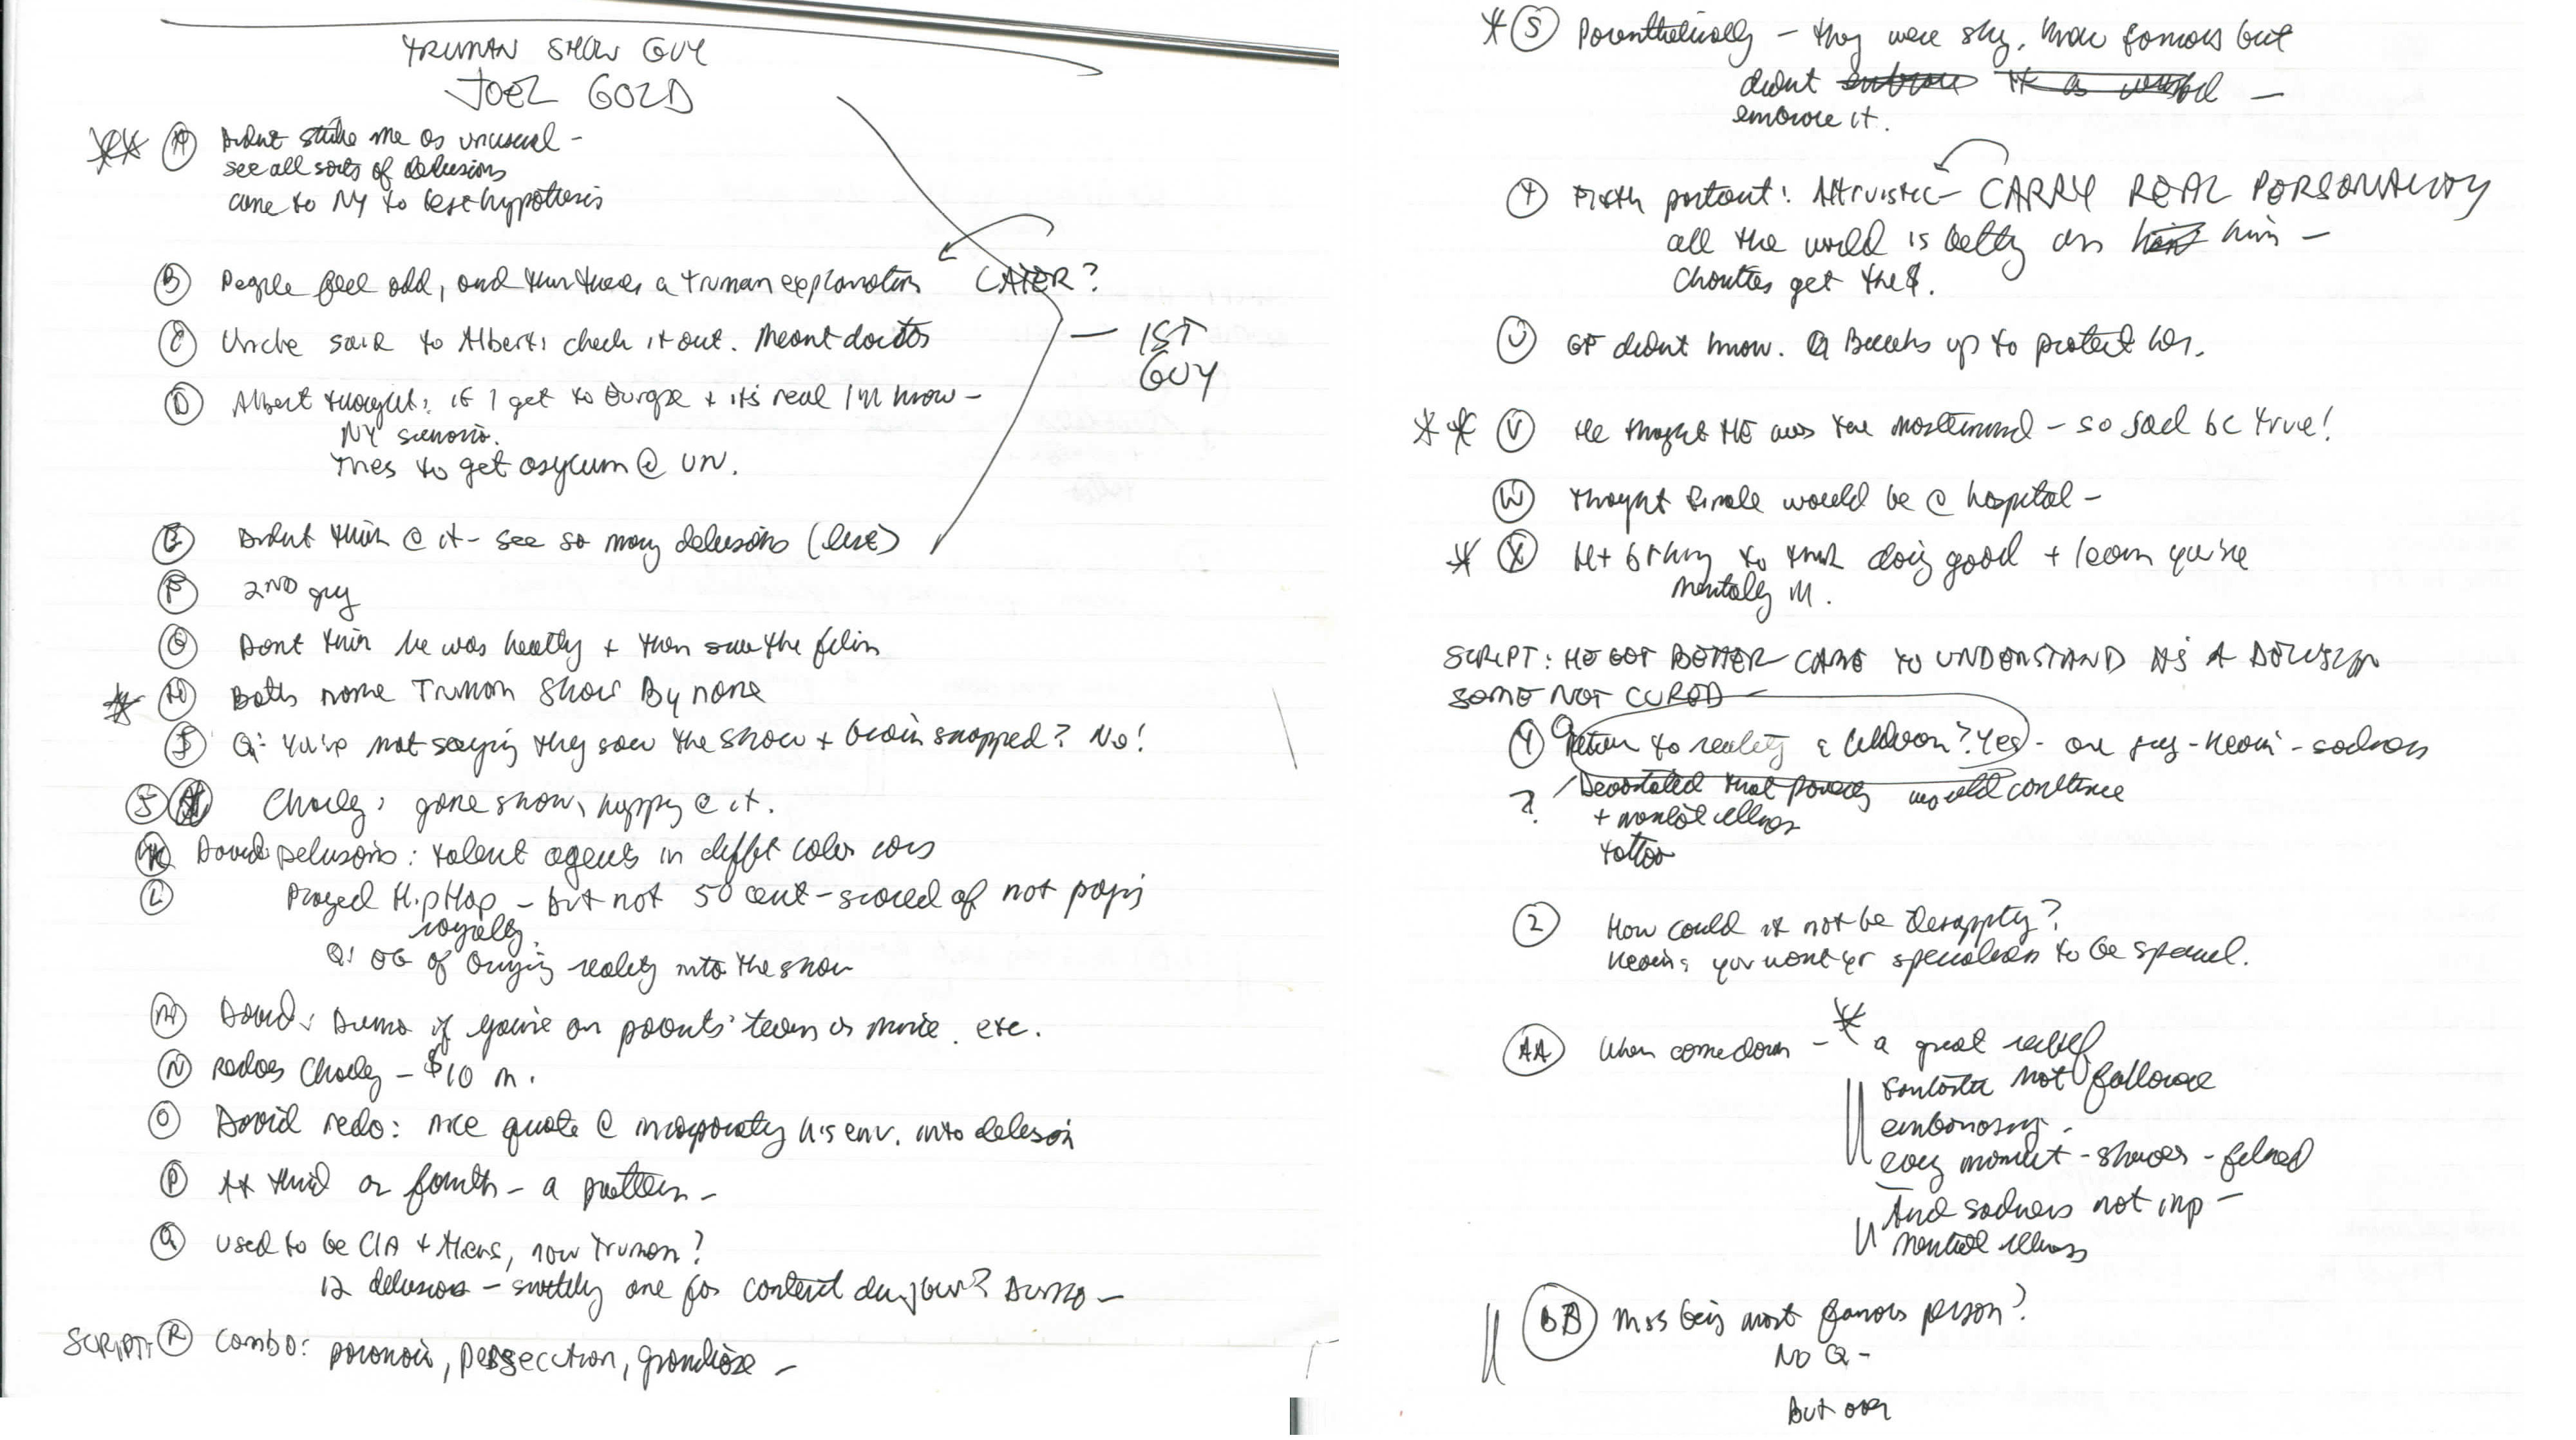 TRUMAN SHOW GUY
JOEL GOLD
A Didnt strike me as unusual -
see all sorts of delusions
came to NY to test hypothesis
B People feel odd, and then theres a Truman explanation LATER?
C Uncle said to Albert: check it out. Meant doctors
1ST
GUY
D Albert thought: if I get to Europe + its real I'll know -
NY scenario.
Tries to get asylum @ UN.
E Didnt think @ it - see so many delusions (list)
F 2ND guy
G Dont think he was healthy + then saw the film
H Both name Truman Show By name
I Q: You're not saying they saw the show + brain snapped? No!
J Charley: game show, happy @ it.
K David delusions: talent agents in diffnt color cars
L Played Hip Hop - but not 50 cent - scared of not payig
royalty.
Q: OG of bringing reality into the show
M David: Dunno if you're on parents' team vs mine. etc.
N Redoes Charley - $10 m.
O David redo: nice quote @ incorporatg his env. into delusion
P At third or fourth - a pattern -
Q Used to be CIA + Aliens, now Truman?
12 delusions - suddenly one for content du jour? Dunno -
SCRIPT: R Combo: paranoia, persecution, grandiose -
S Parenthetically - they were shy, know famous but
didnt
embrace it.
T Fifth patient: Altruistic - CARRY REAL PERSONALITY
all the world is betting on him -
Charities get the $.
U GF didnt know. Breaks up to protect her.
V He thought HE was the mastermind - so sad bc true!
W Thought finale would be @ hospital -
X Ht brkng to think doing good + learn you're
mentally ill.
SCRIPT: HE GOT BETTER CAME TO UNDERSTAND AS A DELUSION
SOME NOT CURED
Y Return to reality a letdown? Yes - one guy - Kevin - sadness
? Devastated that poverty would continue
+ mental illness
tattoo
Z How could it not be disappty?
Kevin: you want yr specialness to be special.
AA When come down - a great relief
fantastic not followed
embarrassing.
every moment - shower - filmed
And sadness not imp -
mental illness
BB Miss being most famous person?
No Q -
But over